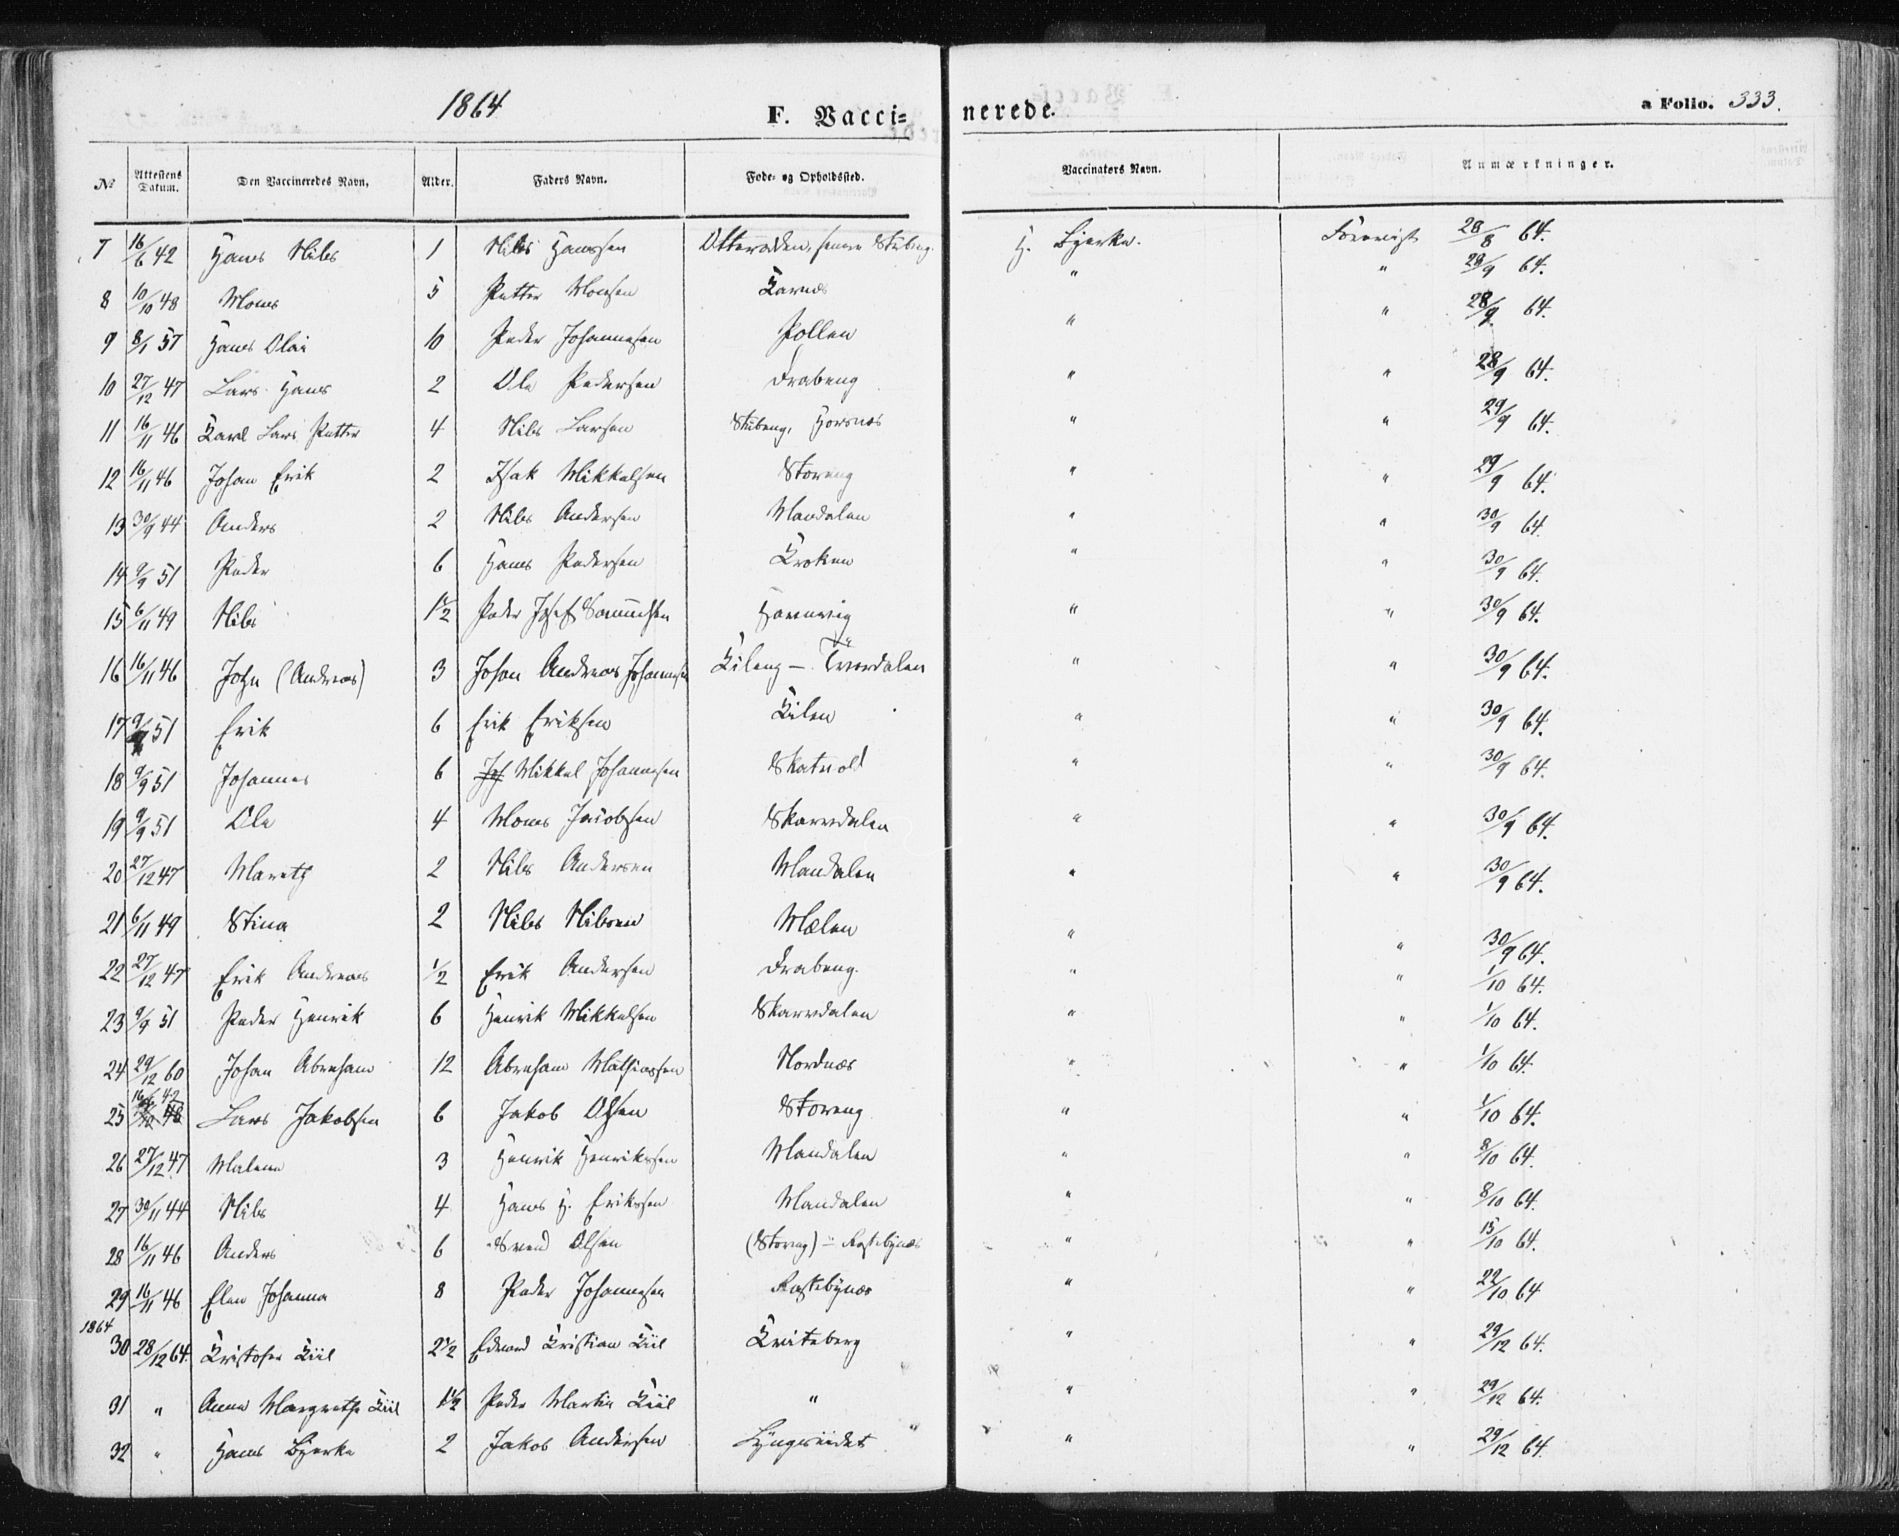 1864 F. Vacci= nerede. a Folio. 333.
No Attestens Datum. Den Vaccineredes Navn. Alder. Faders Navn. Føde- og Opholdssted. Vaccinators Navn. Anmærkninger.
7 16/6 42 Hans Nils 1 Nils Hanssen Otteraaen, senere Stubeng. H. Bjerke. Forevist 28/8 64.
8 10/10 48 Mons 5 Petter Monsen Karnes " " 28/9 64.
9 8/1 57 Hans Olai 10 Peder Johannesen Pollen " " 28/9 64.
10 27/12 47 Lars Hans 2 Ole Pedersen Drabeng " " 28/9 64.
11 16/11 46 Karl Lars Petter 4 Nils Larsen Stubeng, Horsnes " " 29/9 64.
12 16/11 46 Johan Erik 2 Isak Mikkelsen Storeng " " 29/9 64.
13 30/9 44 Anders 2 Nils Andersen Mandalen " " 30/9 64.
14 9/9 51 Peder 6 Hans Pedersen Kroken " " 30/9 64.
15 6/11 49 Nils 1 1/2 Peder Josef Samuelsen " " 30/9 64.
16 16/11 46 John (Andreas) 3 Johan Andreas Johannesen Kileng — Tverdalen " " 30/9 64.
17 9/9 51 Erik 6 Erik Eriksen Kilen " " 30/9 64.
18 9/9 51 Johannes 6 Mikkel Johannesen Skatvold " " 30/9 64.
19 9/9 51 Ole 4 Mons Jacobsen Skarvdalen " " 30/9 64.
20 27/12 47 Mareth 2 Nils Andersen Mandalen " " 30/9 64.
21 6/11 49 Stina 2 Nils Nilsen Mælen " " 30/9 64.
22 27/12 47 Erik Andreas 1/2 Erik Andersen Drabeng. " " 1/10 64.
23 9/9 51 Peder Henrik 6 Henrik Mikkelsen Skarvdalen " " 1/10 64.
24 29/12 60 Johan Abraham 12 Abraham Mathiassen Nordnæs " " 1/10 64.
25 16/6 42 Lars Jakobsen 6 Jakob Olsen Storeng " " 1/10 64.
26 27/12 47 Malene 3 Henrik Henriksen Mandalen " " 8/10 64.
27 30/11 44 Nils 4 Hans H. Erikssen Mandalen " " 8/10 64.
28 16/11 46 Anders 6 Svend Olsen (Storeng) — Rastebynæs " " 15/10 64.
29 16/11 46 Elen Johanna 8 Peder Johannesen Rastebynæs " " 22/10 64
1864
30 28/12 64. Kristofer Kiil 2 1/2 Edvard Kristian Kiil Kviteberg " " 29/12 64.
31 " Anne Margrethe Kiil 1 1/2 Peder Martin Kiil " " " 29/12 64.
32 " Hans Bjerke 2 Jakob Andersen Lyngseidet " " 29/12 64.